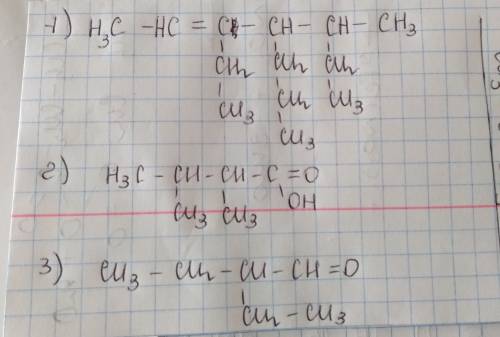 1) H₃C - HC = C - CH - CH - CH₃
CH₂ CH₂ CH₂
CH₃ CH₂ CH₃
CH₃
2) H₃C - CH - CH - C = O
CH₃ CH₃ OH
3) CH₃ - CH₂ - CH - CH = O
CH₂ - CH₃